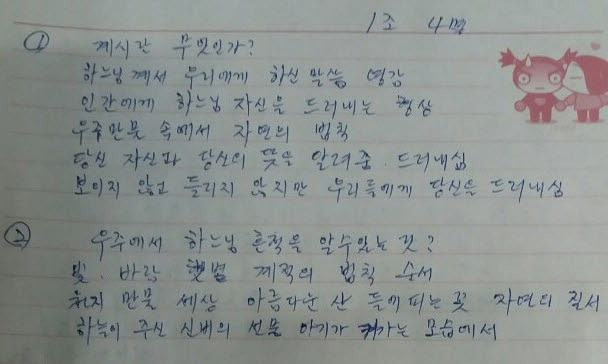 1조 4명
① 계시란 무엇인가?
하느님께서 우리에게 하신 말씀 영감
인간에게 하느님 자신을 드러내는 형상
우주만물 속에서 자연의 법칙
당신 자신과 당신의 뜻을 알려줌. 드러내심
보이지 않고 들리지 않지만 우리들에게 당신을 드러내심
② 우주에서 하느님 흔적을 알수있는 것?
빛. 바람 햇볕 계절의 법칙 순서
천지 만물 세상 아름다운 산 들에 피는 꽃 자연의 질서
하늘이 주신 신비의 선물 아기가 커가는 모습에서